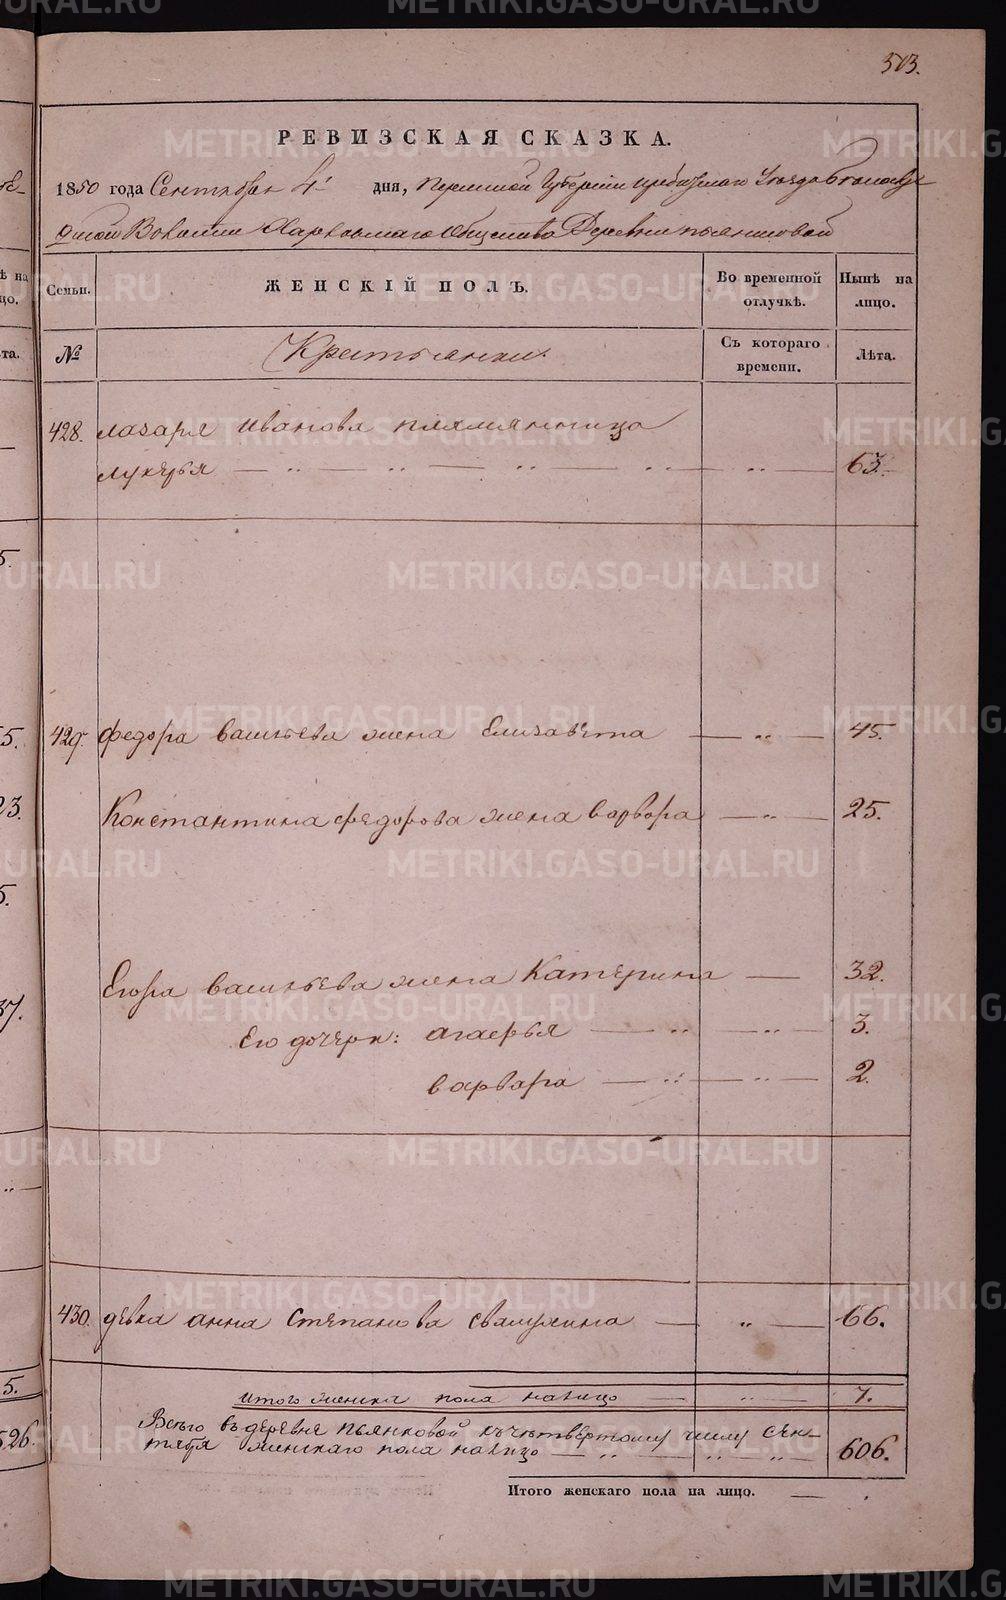 513.
РЕВИЗСКАЯ СКАЗКА.
1850 года Сентября 4 дня, Пермской Губернии Ирбитскаго Уезда
Волости Харловскаго Общества Деревни Пьянковой
Семьи. ЖЕНСКІЙ ПОЛЪ. Во временной отлучкѣ. Нынѣ на лицо.
№ Крестьянки. Съ котораго времени. Лѣта.
428. лазаря иванова племянница
лукерья — „ — „ — „ — „ — „ — 63.
429. федора васильева жена Елизавѣта — „ — 45.
Константина федорова жена варвара — „ — 25.
Егора васильева жена Катерина — 32.
Его дочери: агафья — „ — „ — 3.
варвара — „ — „ — 2.
430. девка анна степанова — „ — 66.
итого женска пола налицо — „ — 7.
Всего въ деревне пьянковой къ четвертому числу сен-
тября женскаго пола налицо — „ — „ — „ — 606.
Итого женскаго пола на лицо. —
METRIKI.GASO-URAL.RU